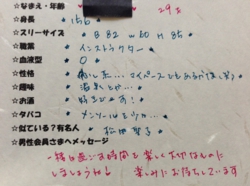 ☆なまえ・年齢 29才
☆身長 156
☆スリーサイズ B 82 W 60 H 85
☆職業 インストラクター
☆血液型 O
☆性格
☆趣味 温泉とか…
☆お酒 好きです!
☆タバコ
☆似ている?有名人 松田聖子
☆男性会員さまへメッセージ
一緒に過ごす時間を楽しく大切なものに
しましょうね! 楽しみにお待ちしています